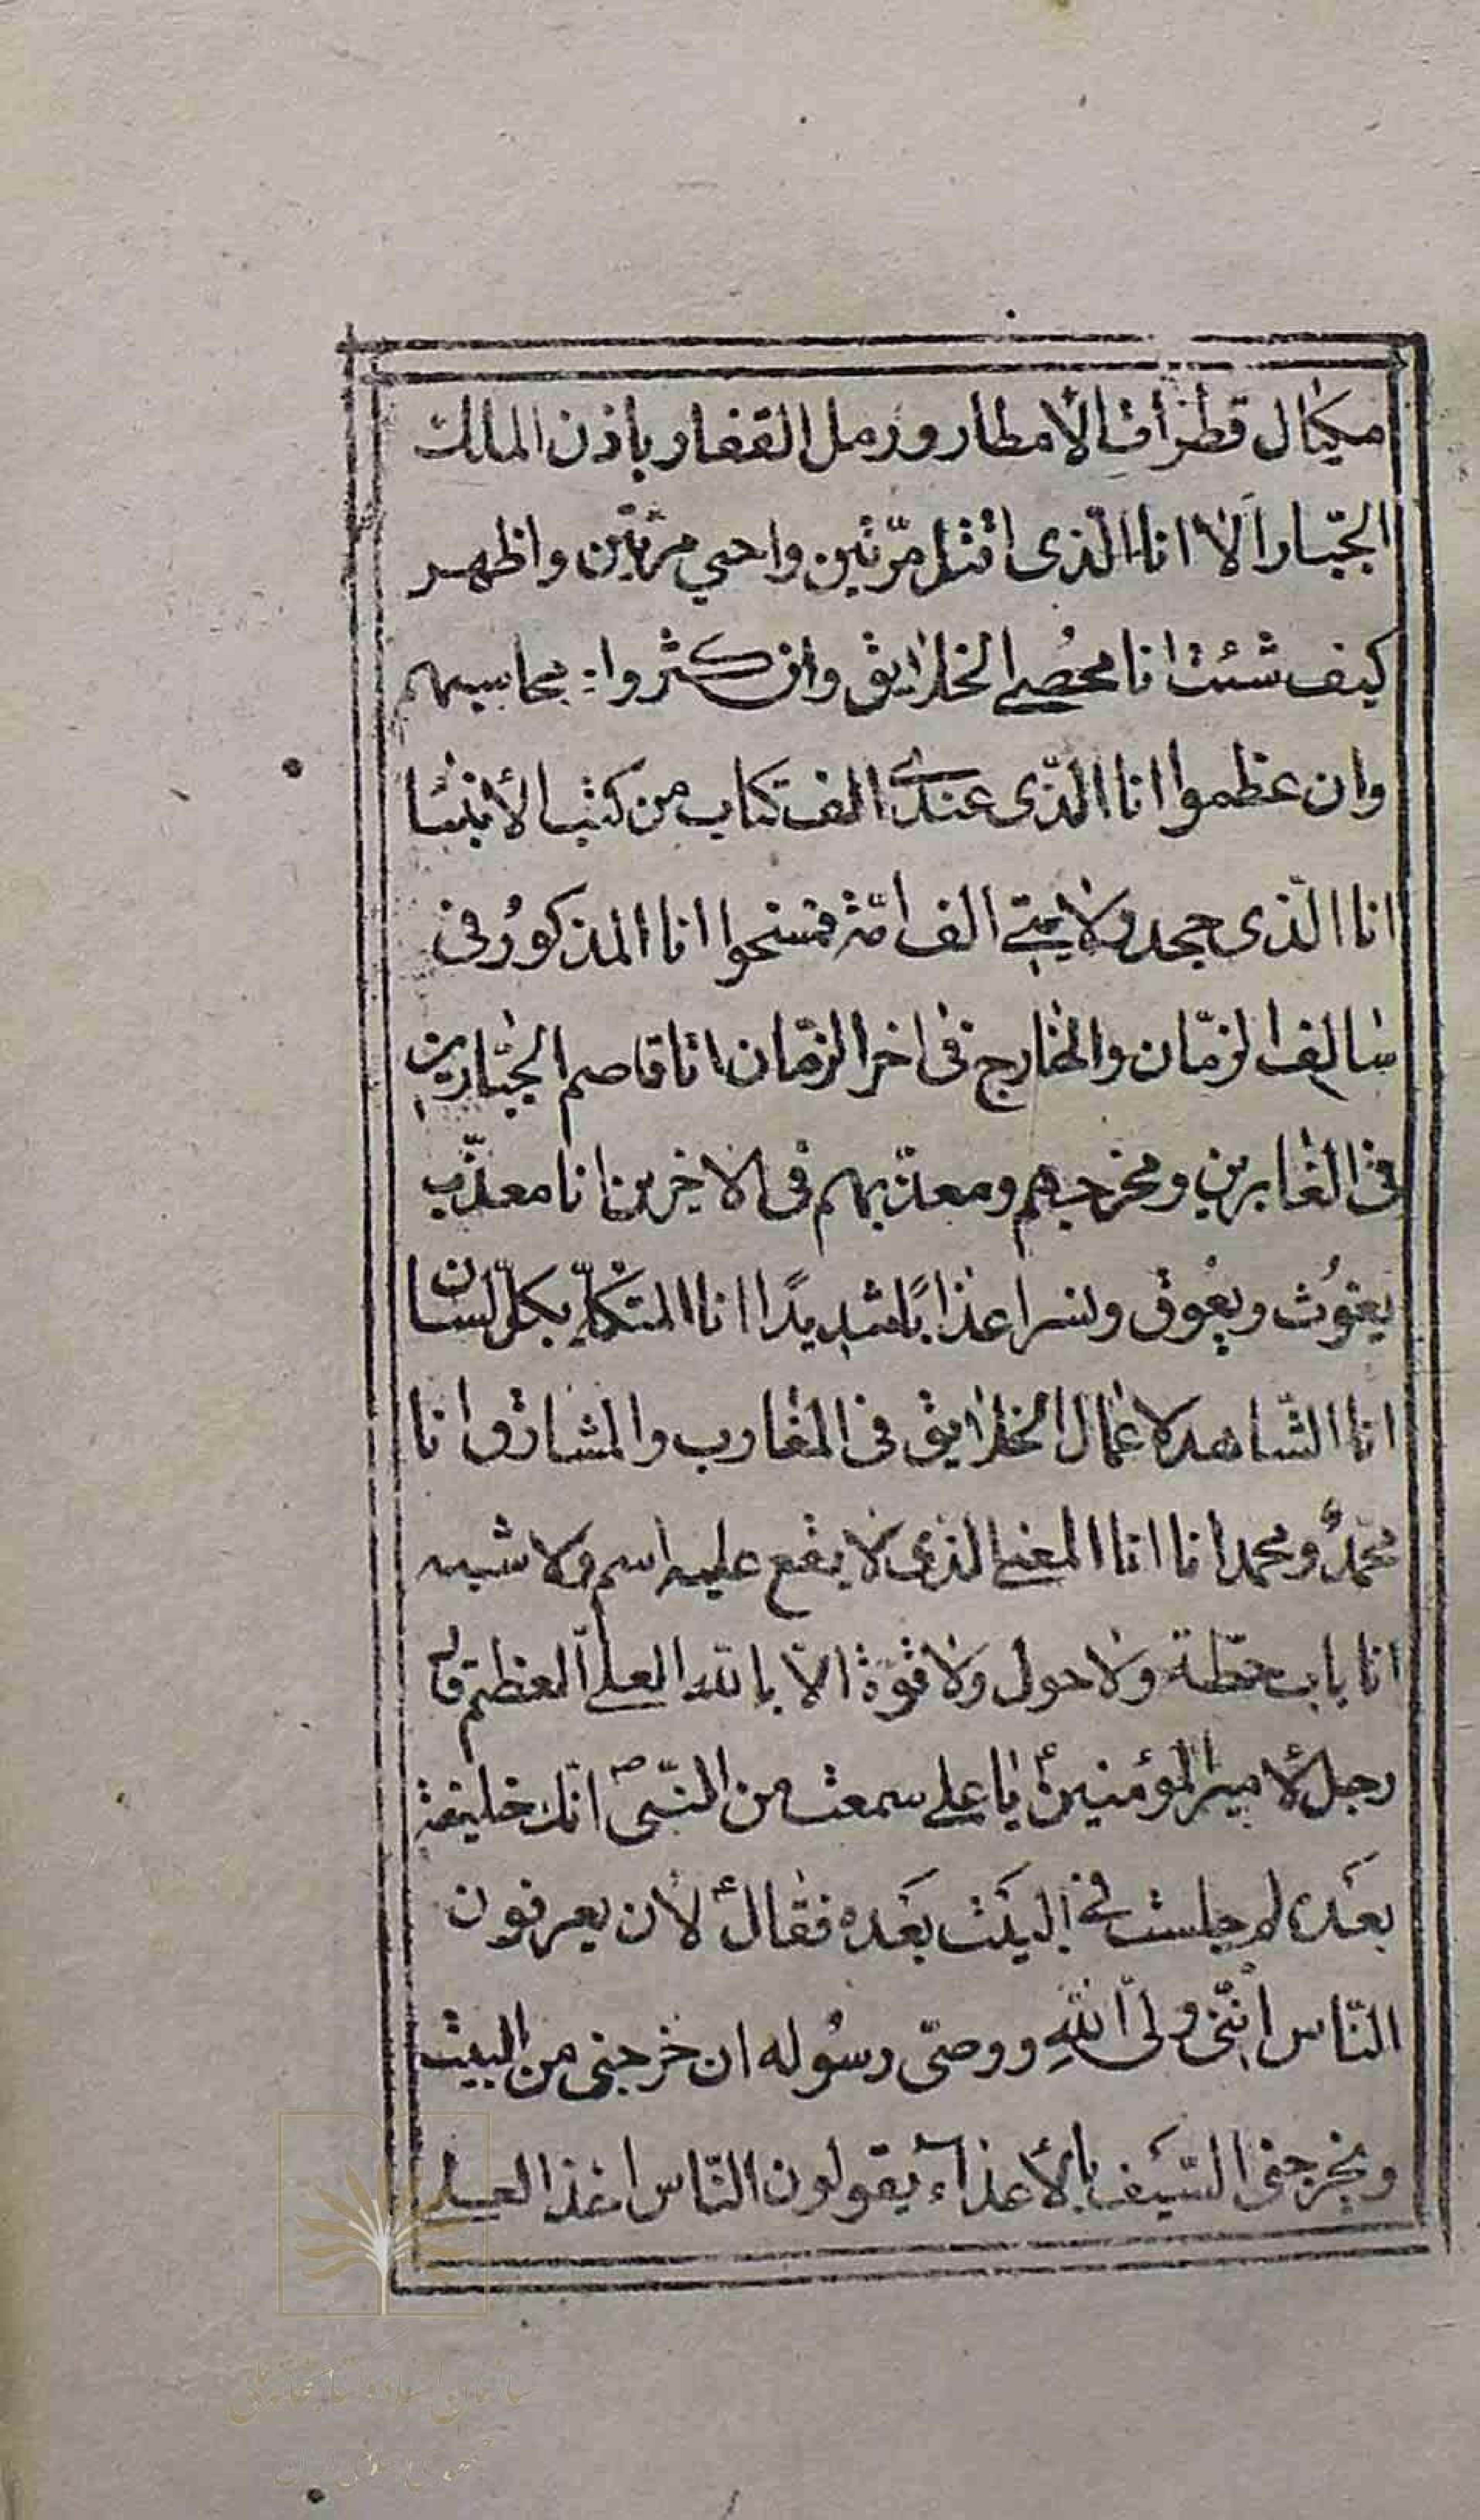 مكيال قطرات الأمطار ورمل القفار باذن الملك
الجبّار اَلا انا الّذى اقتل مرّتين واحيي مرّتين واظهر
كيف شئت انا محُصي الخلايق وان كثروا بحاسبهم
وان عظموا انا الّذى عندى الف كتاب من كتب الأنبيا
انا الّذى جحد ولايتي الف امّة فمسخوا انا المذكورُ فى
سالف الزمّان والخارج فى اخر الزمّان انا قاصم الجبّارين
فى الغابرين ومخرجهم ومعذّبهم فى الاخرين انا معذّب
يغوُث ويعُوق ونسرا عذابًا شديدًا انا المتكلّم بكلّ لسان
انا الشّاهد لاعمال الخلايق فى المغارب والمشارق انا
محّمدٌ ومحمد انا انا المعنى الذى لا يقع عليه اسم ولا شبه
انا باب حطّة ولا حول ولا قوّة الّا بالله العلي العظيم قال
رجل لأمير المؤمنين ع يا علي سمعت من النّبى ص انّك خليفة
بعَده لم جلست في البيَت بعَده فقال ع لأن يعرفون
النّاس انّنى ولىّ اللهِ ووصىّ رسُوله ان خرجنى من البيت
ويخرجنى السّيَف بالأعذآء يقولون النّاس اخذ العلى